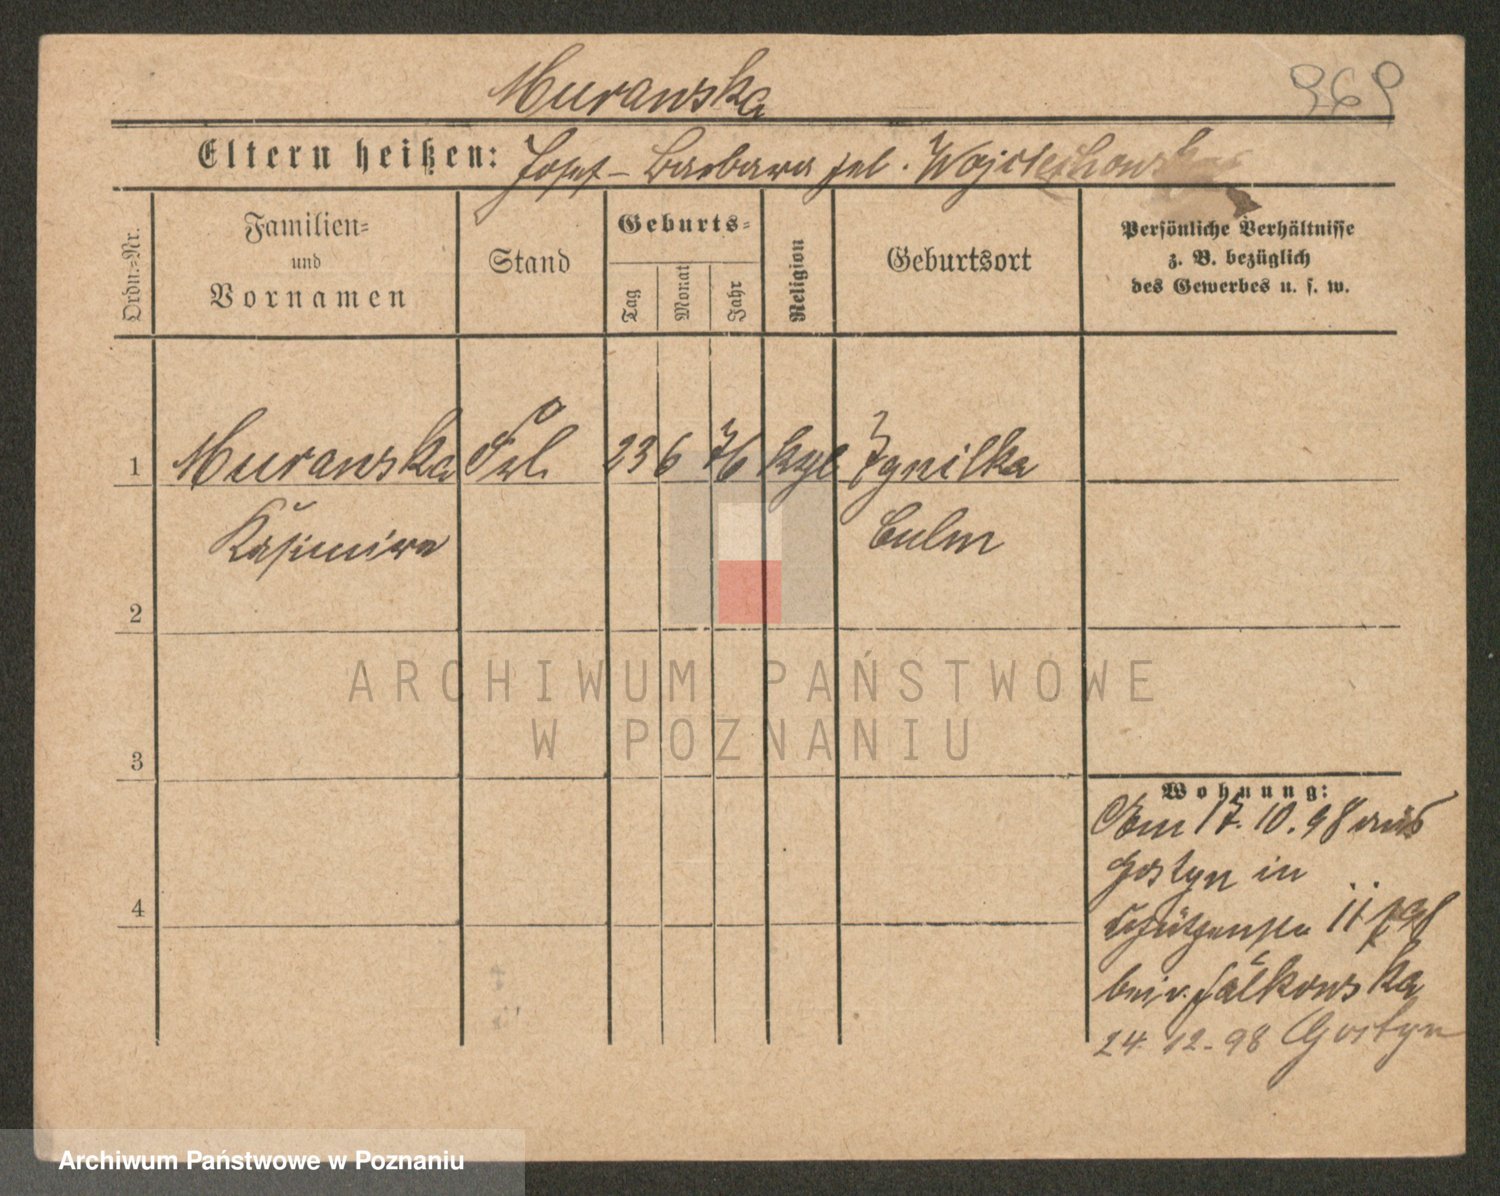 Muranska
969
Eltern heißen: Josef – Barbara geb. Wojciechowska
Ordn.-Nr.
Familien-
und
Vornamen
Stand
Geburts-
Tag
Monat
Jahr
Religion
Geburtsort
Persönliche Verhältnisse
z. B. bezüglich
des Gewerbes u. s. w.
1 Muranska Frl. 23 6 76
Kasimira Culm
2
3
4
Wohnung:
17.10.98 aus
Gostyn in
Schützenstr 11
bei v. Jalkowska
24.12.98 Gostyn
ARCHIWUM PAŃSTWOWE
W POZNANIU
Archiwum Państwowe w Poznaniu